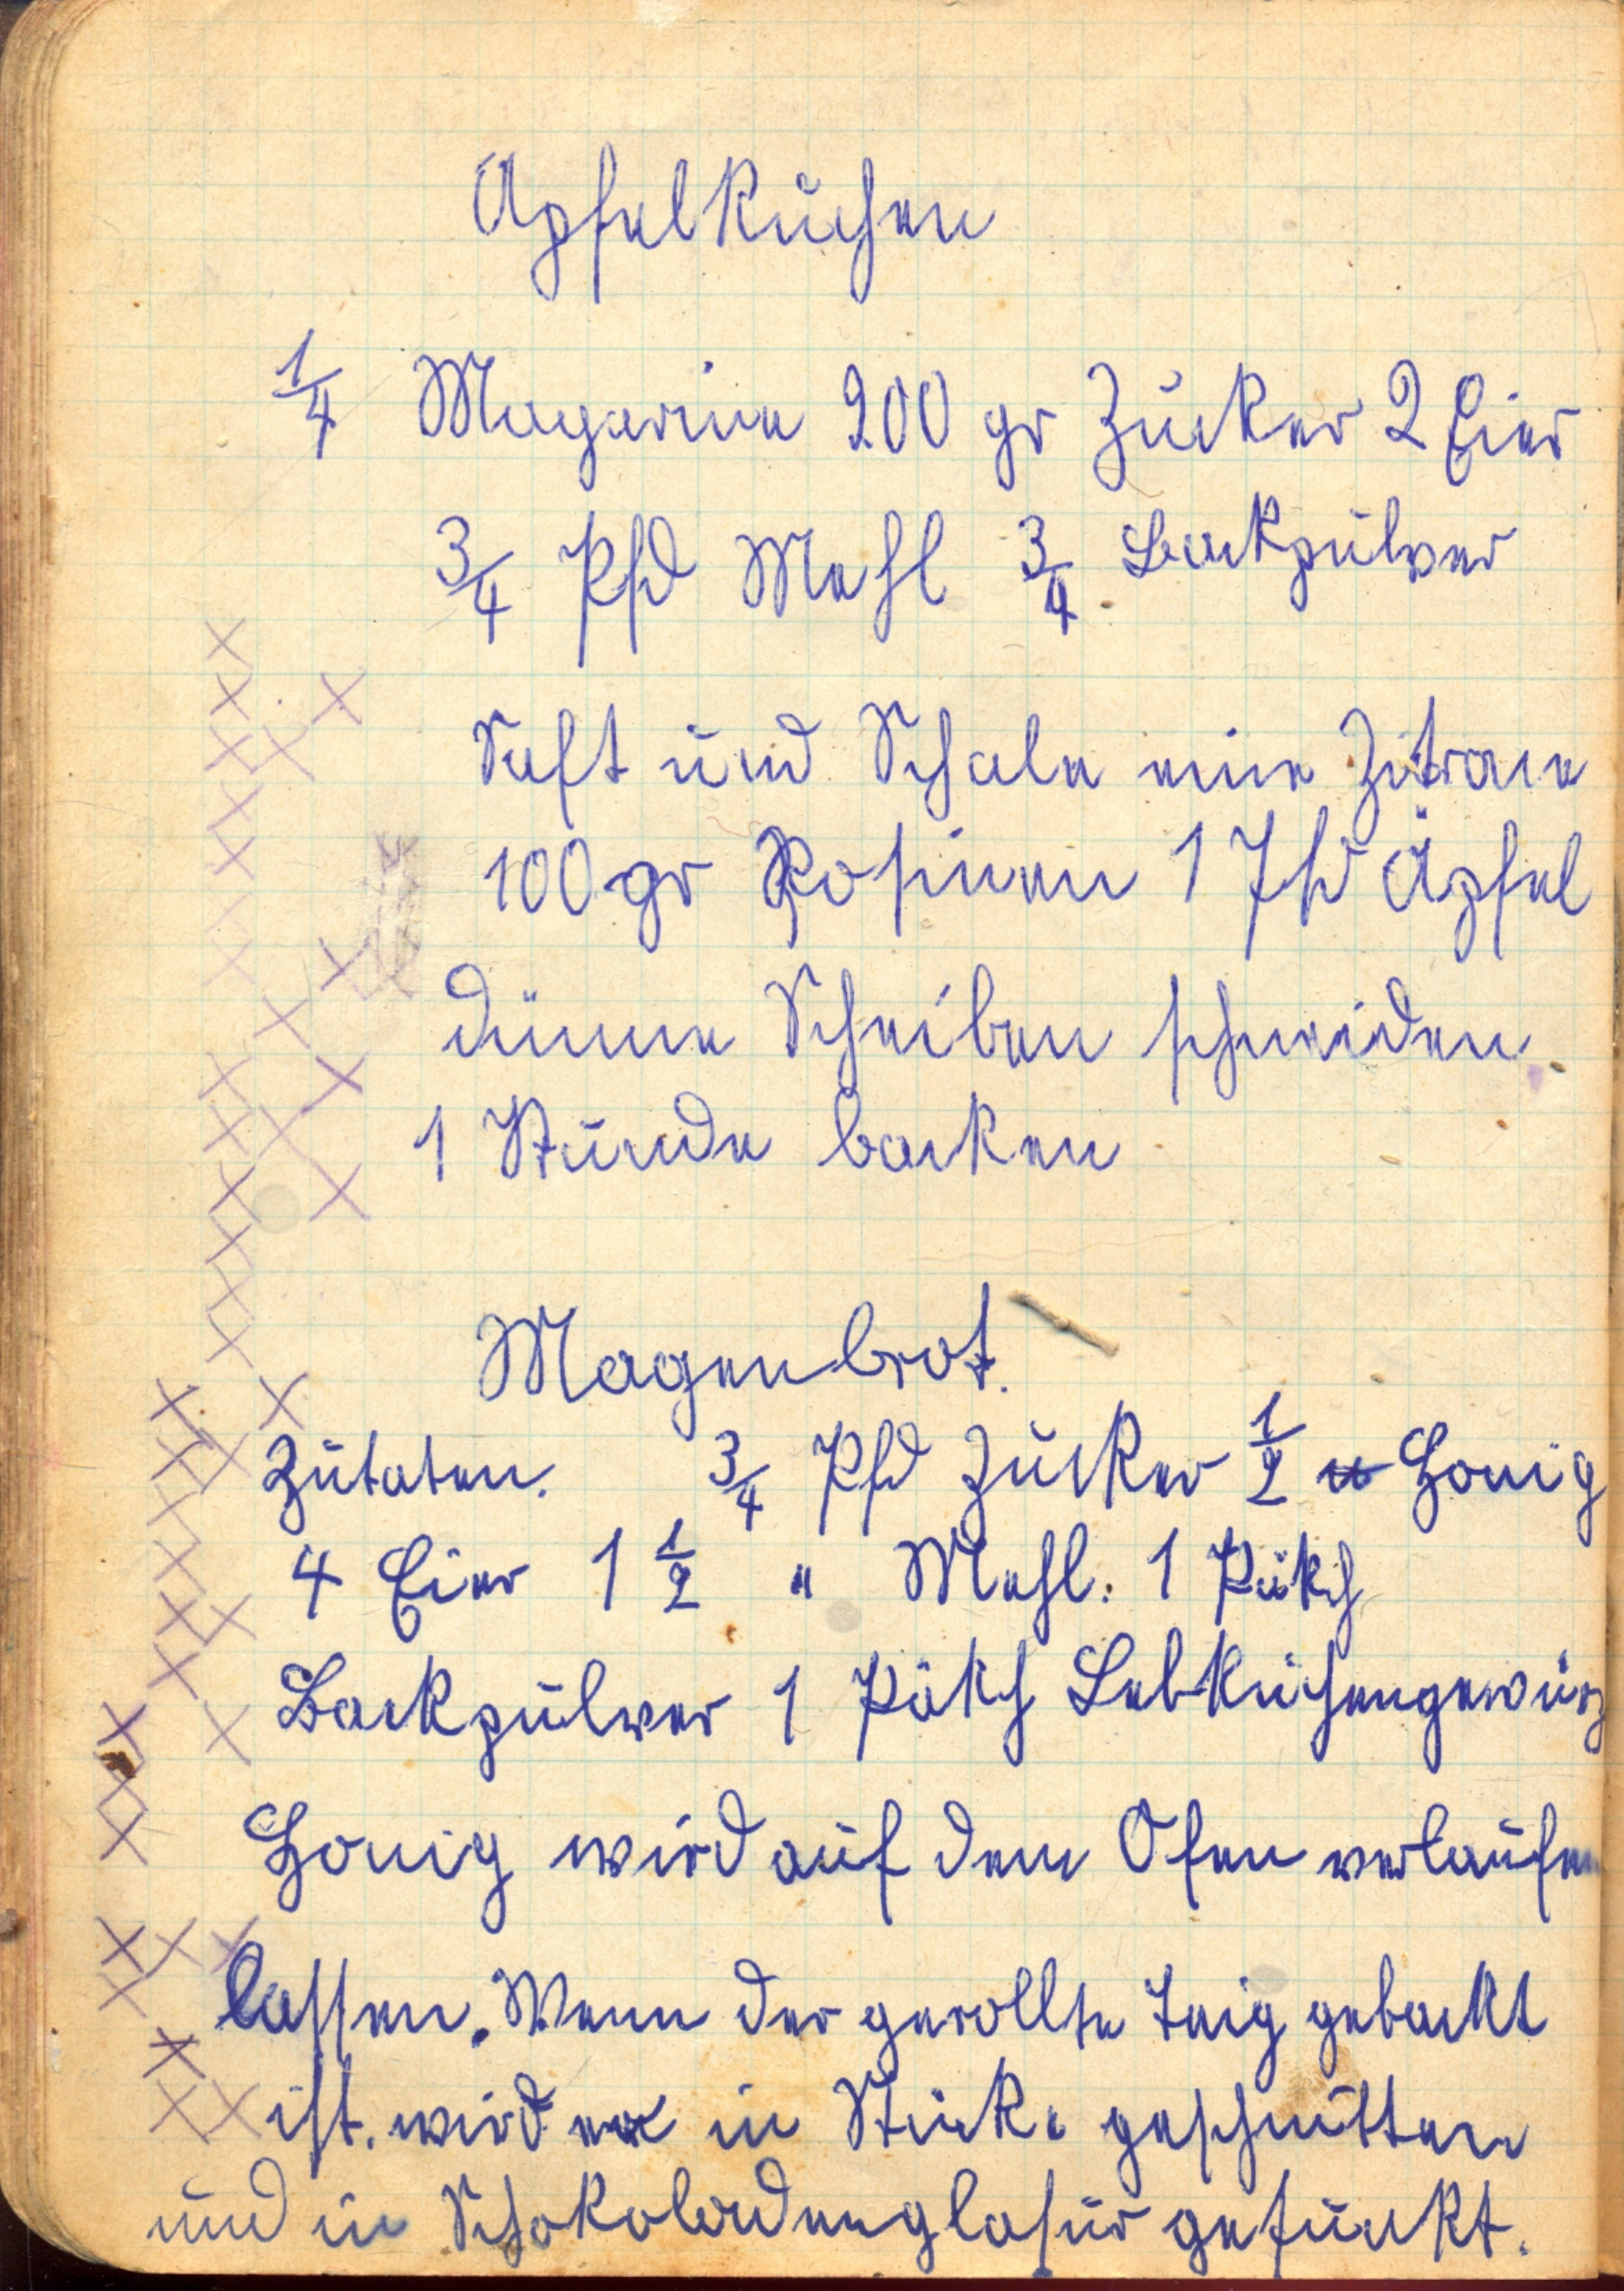 Apfelkuchen
1/4 Magarine 200 gr Zucker 2 Eier
3/4 Pfd Mehl 3/4 Backpulver
Saft und Schale eine Zitrone
100 gr Rosinen 1 Pfd Äpfel
dünne Scheiben schneiden
1 Stunde backen
Magenbrot.
Zutaten. 3/4 Pfd Zucker 1/2 " Honig
4 Eier 1 1/2 " Mehl. 1 Päkch
Backpulver 1 Päkch Lebkuchengewürz
Honig wird auf dem Ofen verlaufen
lassen. Wenn der gerollte Teig gebackt
ist. wird er in Stücke geschnitten
und in Schokoladenglasur getunkt.